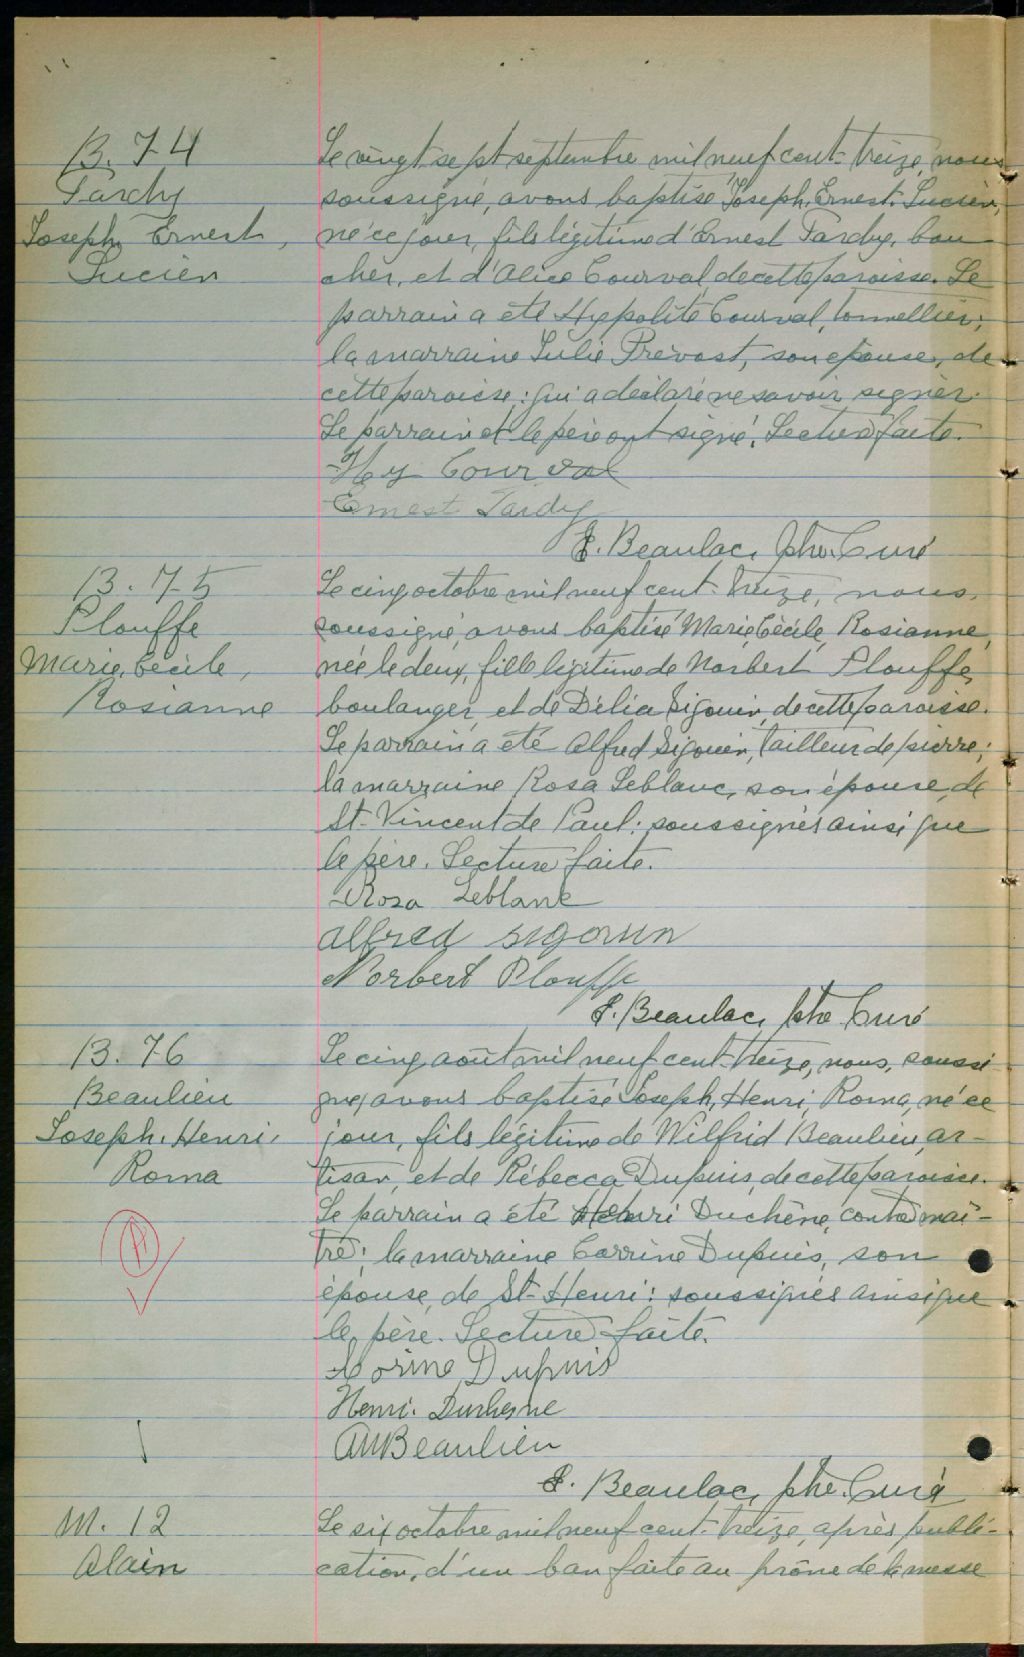 B. 74
Tardy
Joseph, Ernest,
Lucien
Le vingt sept septembre mil neuf cent-treize, nous
soussigné, avons baptisé Joseph, Ernest, Lucien,
né ce jour, fils légitime d'Ernest Tardy, bou
cher, et d'Alice Courval, de cette paroisse. Le
parrain a été Hyppolite Courval, tonnellier;
la marraine Julie Prévost, son épouse, de
cette paroisse; qui a déclaré ne savoir signer.
Le parrain et le père ont signé. Lecture faite.
Hy Courval
Ernest Tardy
Beaulac, ptre. Curé
B. 75
Plouffe
Marie, Cécile,
Rosianne
Le cinq octobre mil neuf cent-treize, nous,
soussigné, avons baptisé Marie, Cécile, Rosianne,
née le deux, fille légitime de Norbert Plouffe,
boulanger, et de Délia Sigouin, de cette paroisse.
Le parrain a été Alfred Sigouin, tailleur de pierre;
la marraine Rosa Leblanc, son épouse, de
St-Vincent de Paul; soussignés ainsi que
le père. Lecture faite.
Rosa Leblanc
Alfred Sigouin
Norbert Plouffe
Beaulac, ptre Curé
B. 76
Beaulieu
Joseph, Henri,
Roma
Le cinq août mil neuf cent-treize, nous, soussi
gné, avons baptisé Joseph, Henri, Roma, né ce
jour, fils légitime de Wilfrid Beaulieu, ar-
tisan, et de Rébecca Dupuis, de cette paroisse.
Le parrain a été Henri Duchêne, contremaî-
tre; la marraine Corrine Dupuis, son
épouse, de St-Henri: soussignés ainsi que
le père. Lecture faite.
Corine Dupuis
Henri. Duchesne
Beaulieu
Beaulac, ptre. Curé
M. 12
Alain
Le six octobre mil neuf cent-treize, après publi-
cation, d'un ban faite au prône de la messe